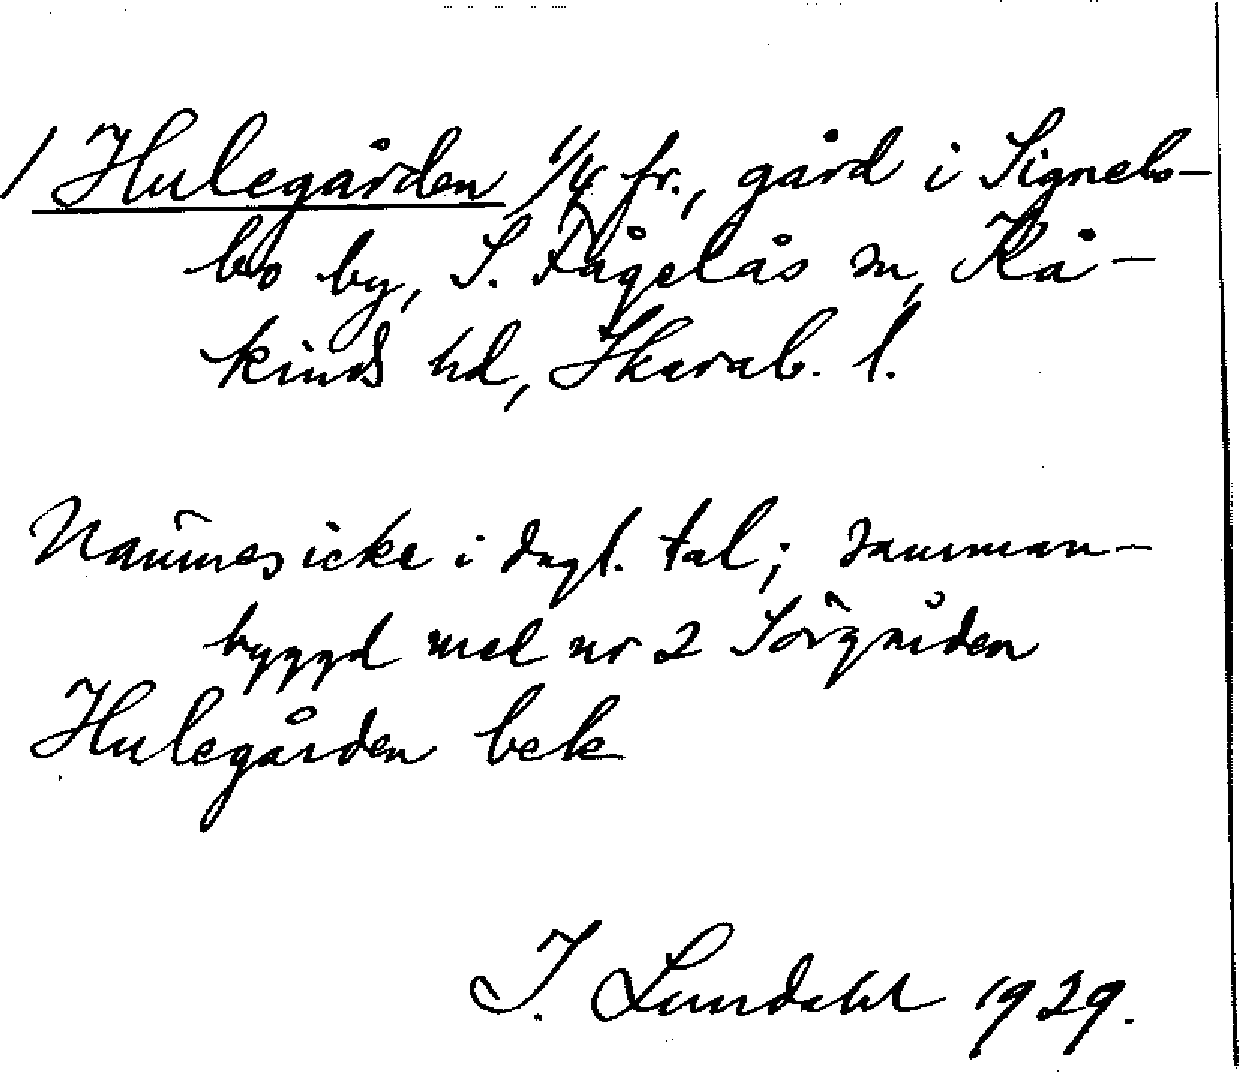 1 Hulegården 1/4 fr., gård i Signebo-
bo by, S. Fågelås sn, Kå-
kinds hd, Skarab. l.
Nämnes icke i dagl. tal; samman-
byggd med nr 2 Sörgården
Hulegården bek
I. Lundahl 1929.